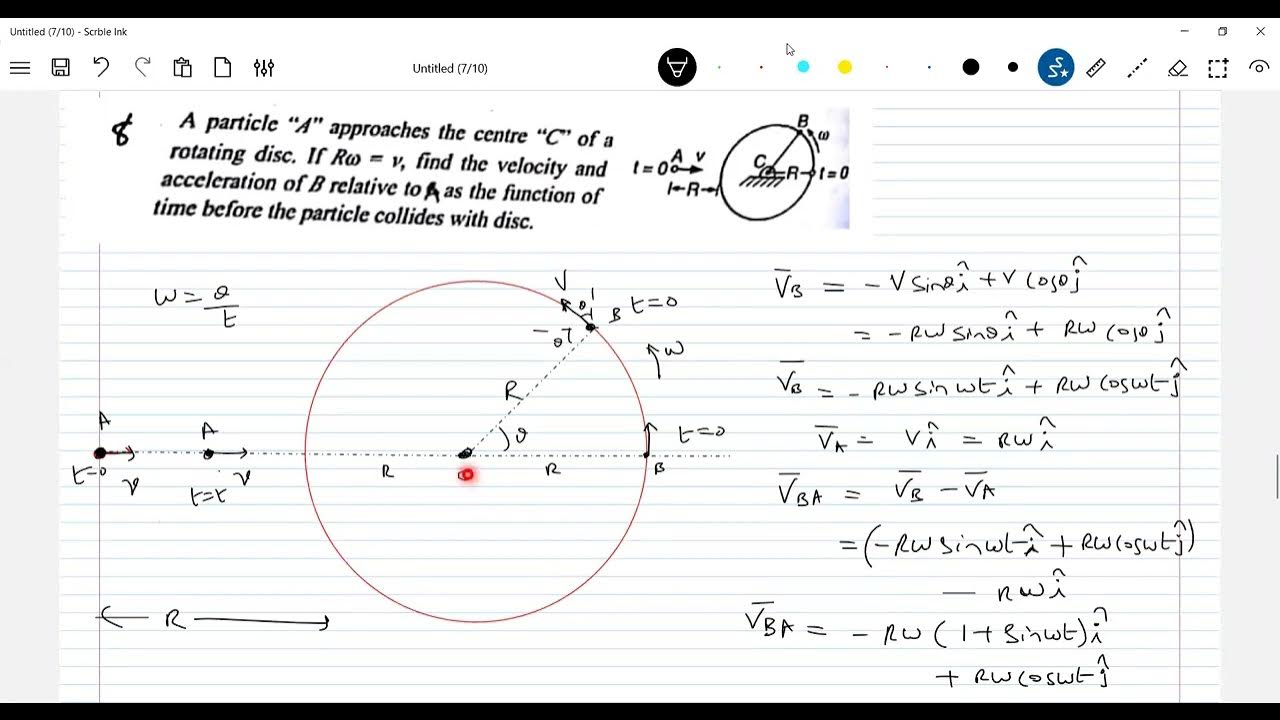 Untitled (7/10) - Scrble Ink
Untitled (7/10)
8
A particle “A” approaches the centre “C” of a
rotating disc. If Rω = v, find the velocity and
acceleration of B relative to A as the function of
time before the particle collides with disc.
B
ω
A v
t=0
C
R
t=0
R
ω = θ/t
V
θ
B t=0
θ
ω
R
θ
A
A
t=0
B
t=0
v
t=t
v
R
R
R
V̅_B = - V sinθ î + V cosθ ĵ
= - Rω sinθ î + Rω cosθ ĵ
V̅_B = - Rω sin ωt î + Rω cos ωt ĵ
V̅_A = V î = Rω î
V̅_BA = V̅_B - V̅_A
= (- Rω sin ωt î + Rω cos ωt ĵ)
- Rω î
V̅_BA = - Rω (1 + sin ωt) î
+ Rω cos ωt ĵ